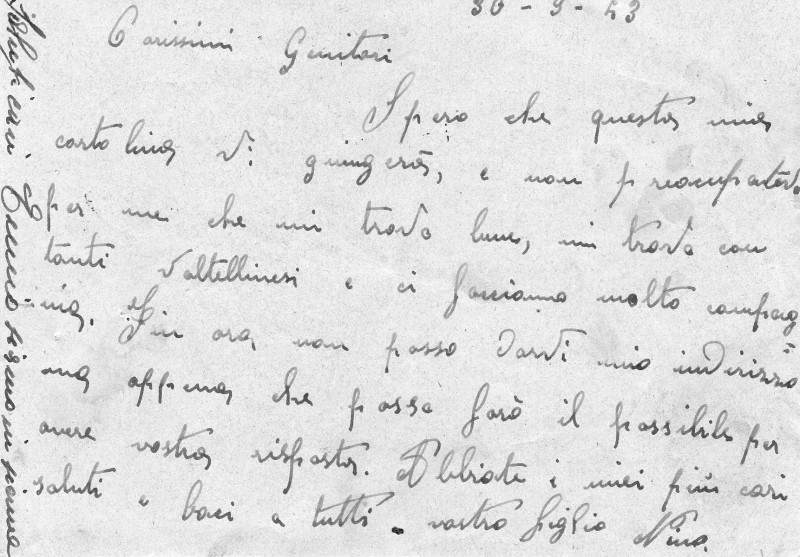 30 - 9 - 43
Carissimi Genitori
Spero che questa mia
cartolina vi giungerà, e non preocupatevi
per me che mi trovo bene, mi trovo con
tanti Valtellinesi e ci facciamo molto compag
nia. Fin ora non posso darvi mio indirizzo
ma appena che posso farò il possibile per
avere vostra risposta. Abbiate i miei più cari
saluti e baci a tutti - vostro figlio Nino
Saluti cari